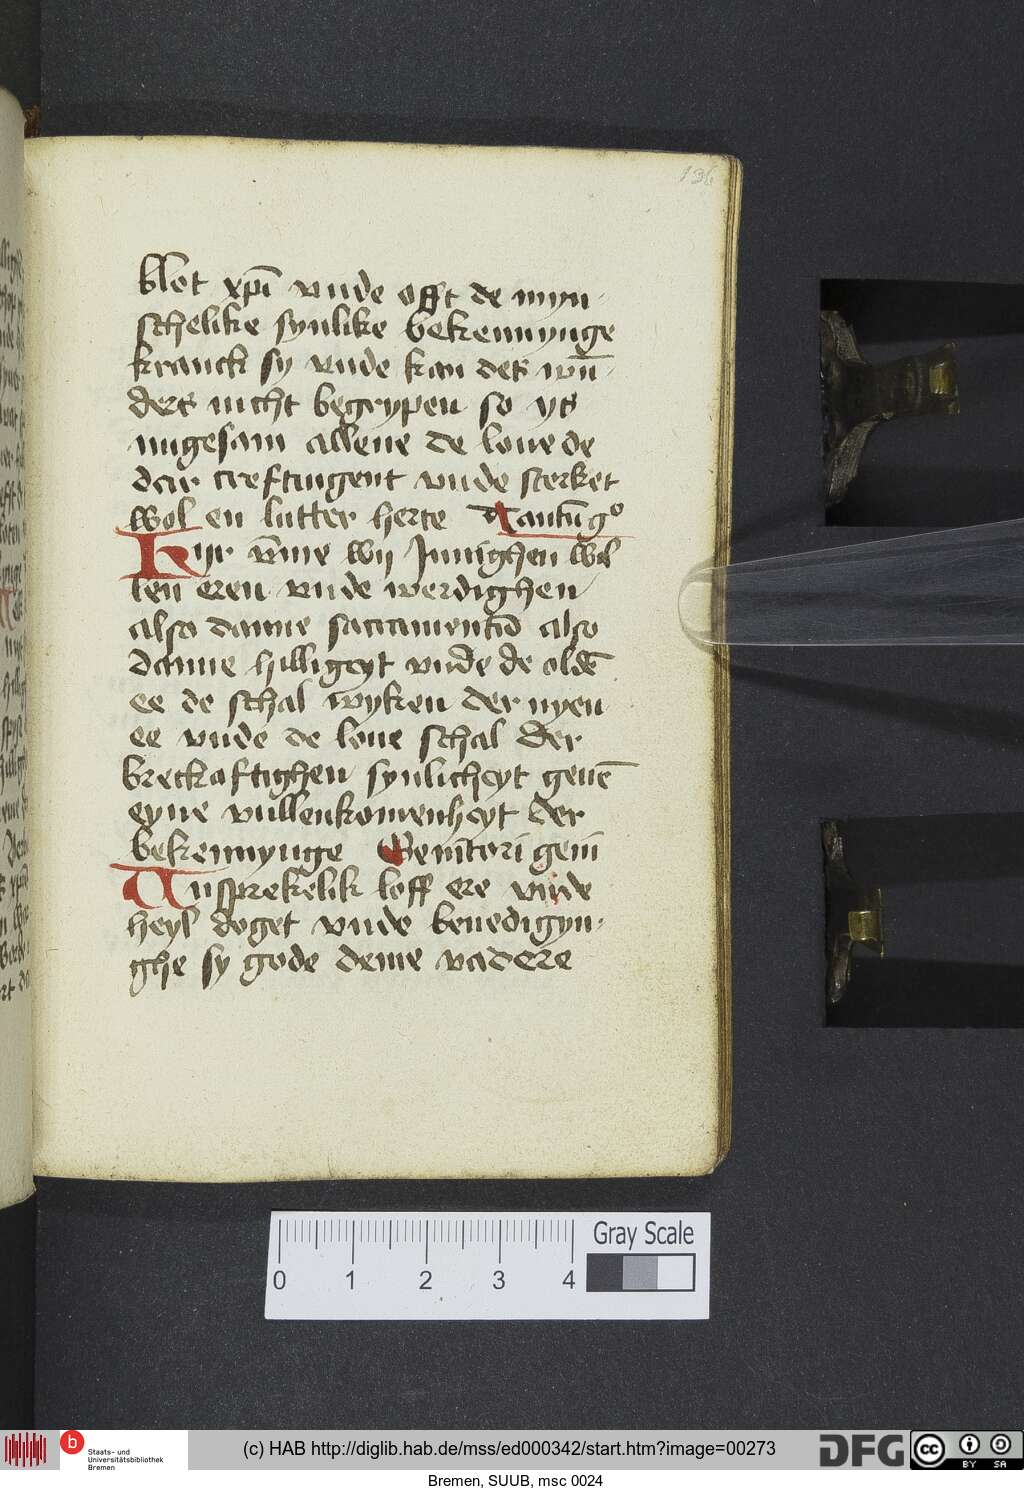 136
blot xpi vnde offt de myn
schelike synlike bekennynge
kranck sy vnde kan des wū
ders nicht begrypen so ys
nugesam allene de loue de
dar creftinget vnde sterket
wol en lutter herte Tantū g°
Hijr vm̄e wij Jnnighen wil
len eren vnde werdighen
also danne sacramentū also
danne hilligeyt vnde de oldē
ee de schal wyken der nyen
ee vnde de loue schal der
breckaftighen synlicheyt geuē
eyne vullenkomenheyt der
bekennynge Genitori geni
Vnsprekelik loff ere vnde
heyl doget vnde benedigyn
ghe sy gode deme vadere
0 1 2 3 4
Gray Scale
b Staats- und
Universitätsbibliothek
Bremen
(c) HAB http://diglib.hab.de/mss/ed000342/start.htm?image=00273
DFG
cc BY SA
Bremen, SUUB, msc 0024